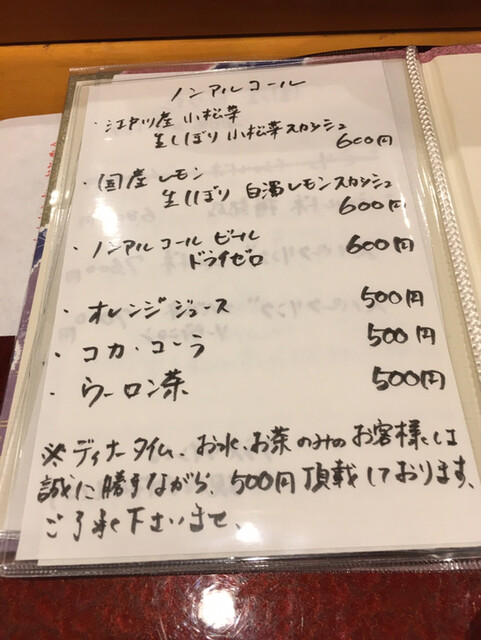 ノンアルコール
・江戸川産 小松菜
生しぼり 小松菜スカッシュ
600円
・国産レモン
生しぼり 白濁レモンスカッシュ
600円
・ノンアルコール ビール
ドライゼロ
600円
・オレンジジュース 500円
・コカ・コーラ 500円
・ウーロン茶 500円
※ディナータイム、お水、お茶のみのお客様は
誠に勝手ながら、500円頂載しております。
ご了承下さいませ。